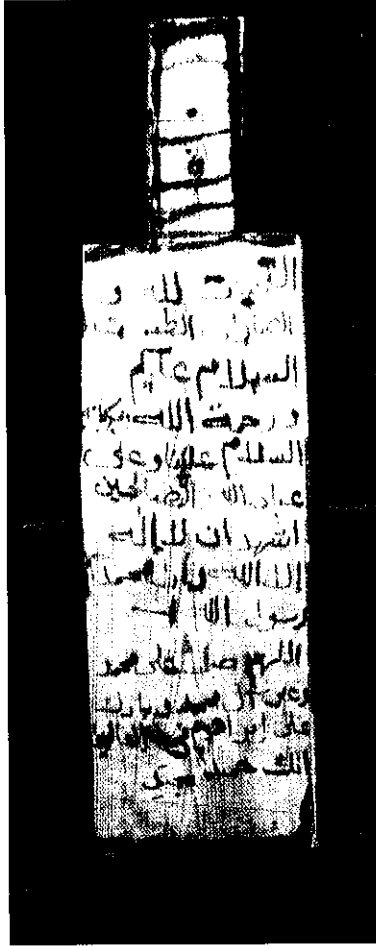 التحيات لله و
الصلوات الطيبات
السلام عليكم
ورحمة الله وبركاته
السلام علينا وعلى
عباد الله الصالحين
اشهد ان لا إله
إلا الله محمد
رسول الله
اللهم صل على محمد
وعلى آل محمد وبارك
على إبراهيم
إنك حميد مجيد